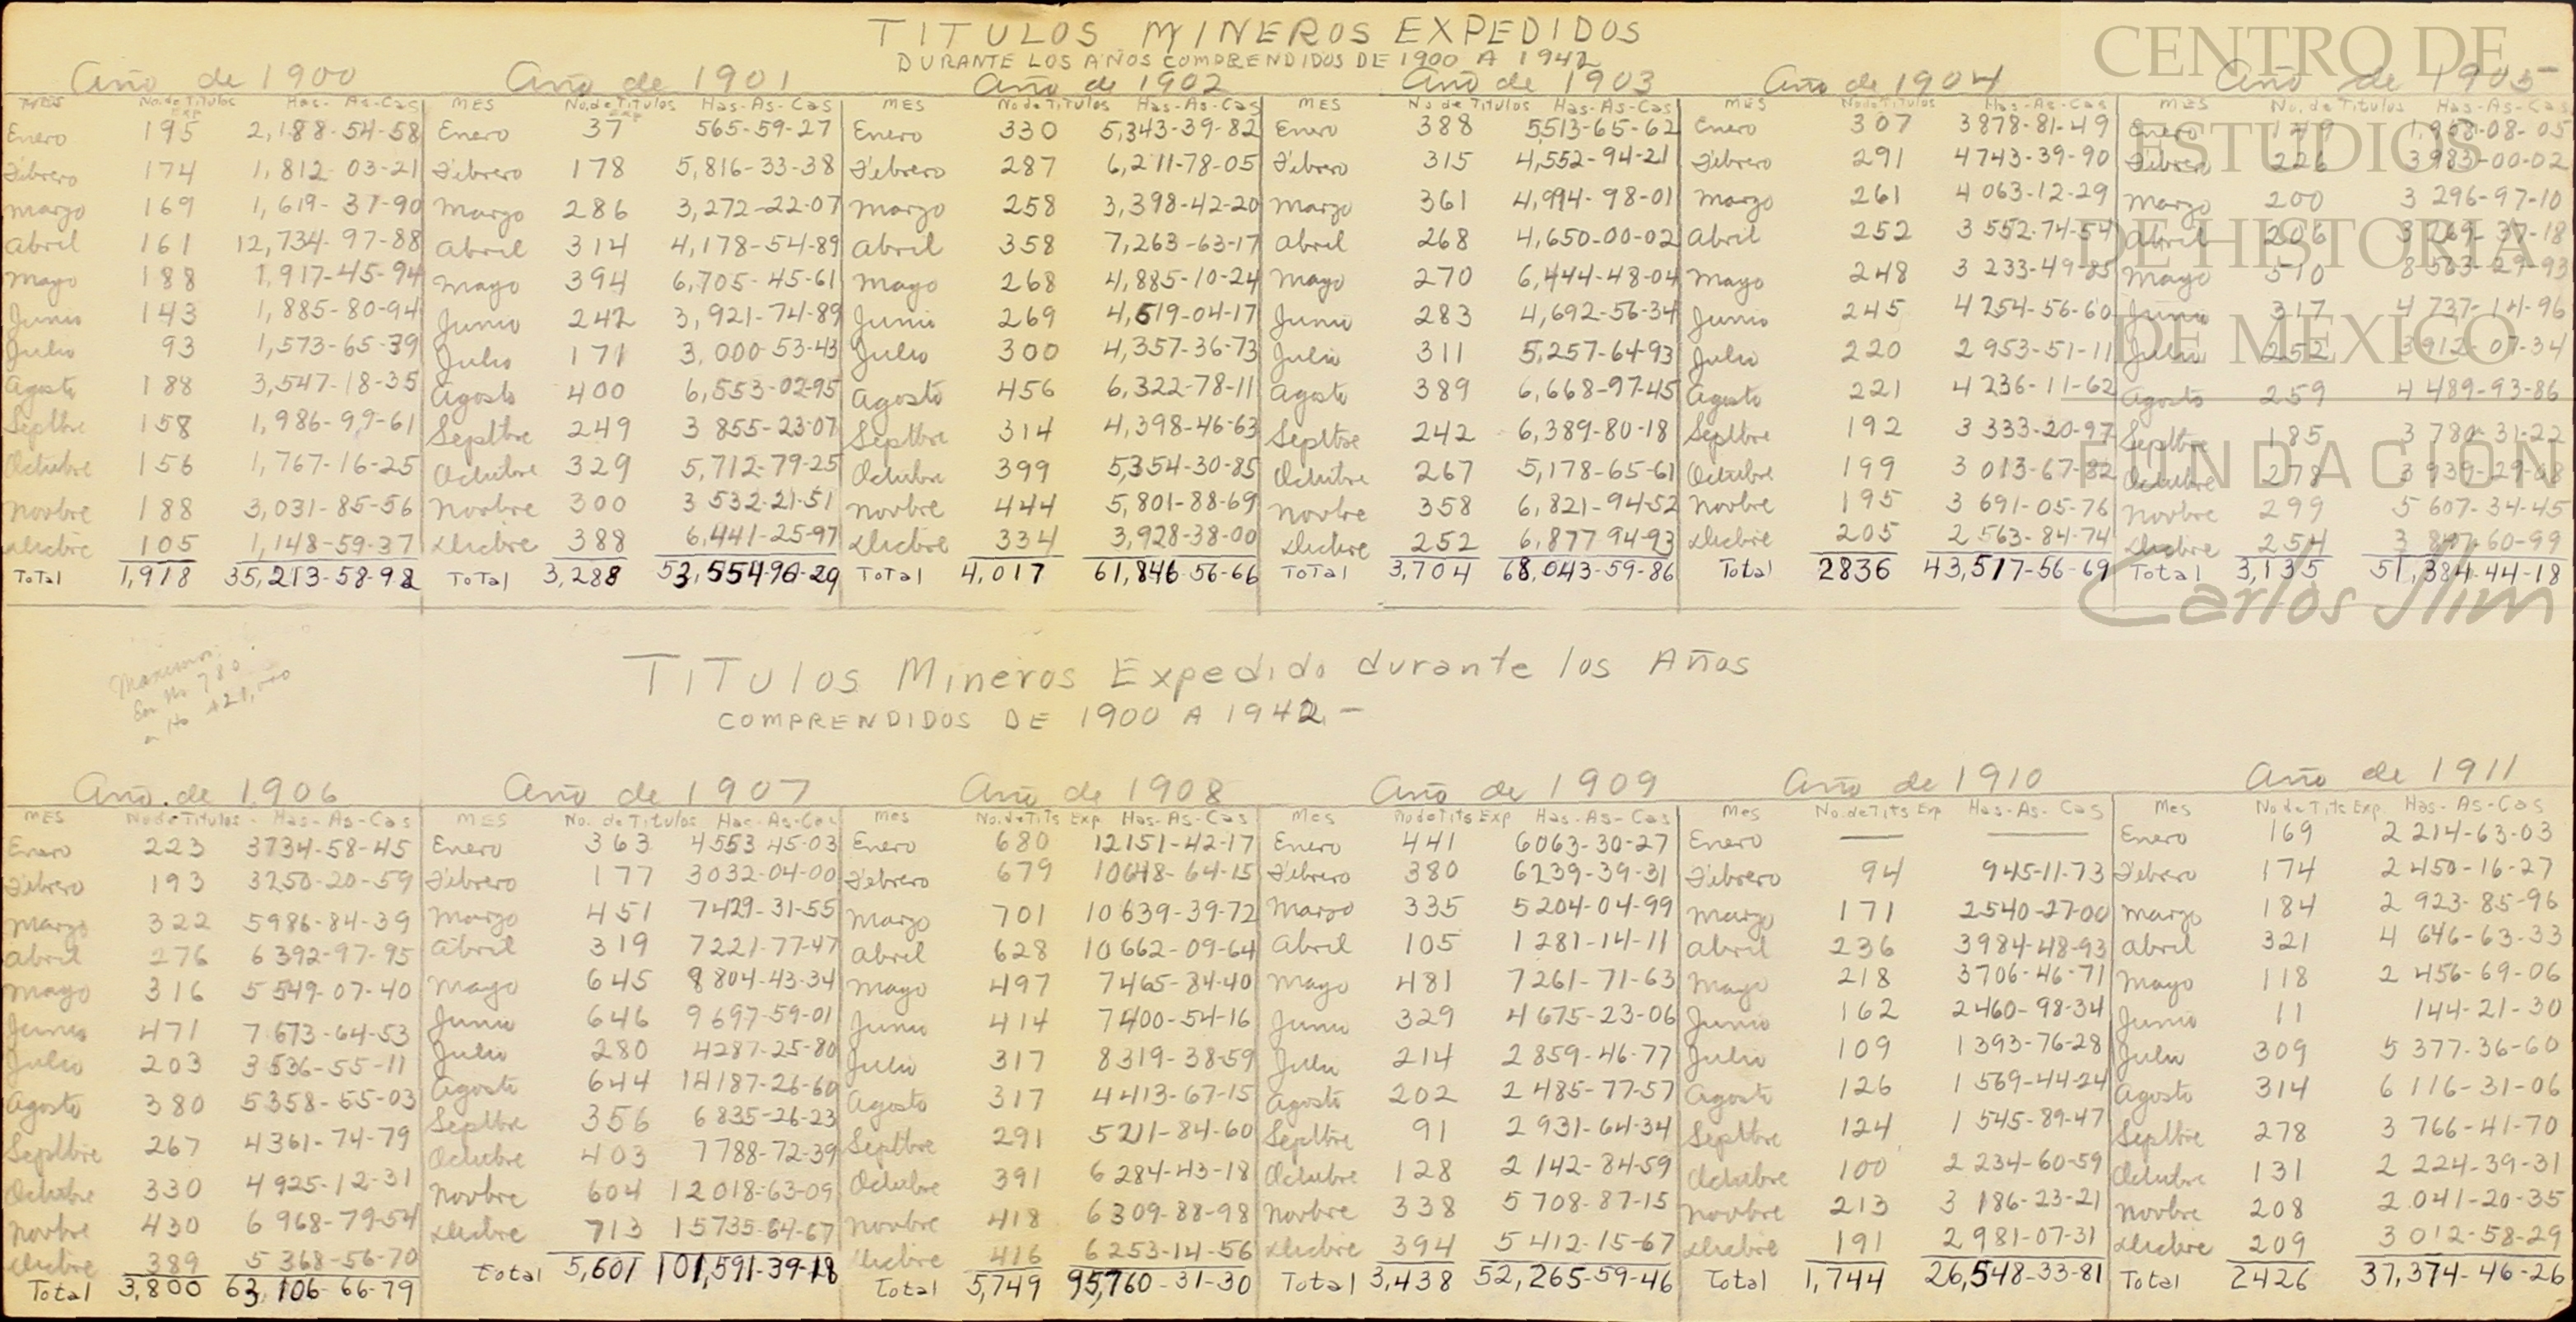 TITULOS MINEROS EXPEDIDOS
DURANTE LOS AÑOS COMPRENDIDOS DE 1900 A 1942
CENTRO DE
ESTUDIOS
DE HISTORIA
DE MEXICO
FUNDACIÓN
Carlos Slim
Año de 1900
MES No. de Titulos Exp Has- As- Cas
Enero 195 2,188-54-58
Febrero 174 1,812-03-21
Marzo 169 1,619-37-90
Abril 161 12,734-97-88
Mayo 188 1,917-45-94
Junio 143 1,885-80-94
Julio 93 1,573-65-39
Agosto 188 3,547-18-35
Septbre 158 1,986-99-61
Octubre 156 1,767-16-25
Novbre 188 3,031-85-56
Dicbre 105 1,148-59-37
Total 1,918 35,213-58-98
Año de 1901
MES No. de Titulos Exp Has- As- Cas
Enero 37 565-59-27
Febrero 178 5,816-33-38
Marzo 286 3,272-22-07
Abril 314 4,178-54-89
Mayo 394 6,705-45-61
Junio 242 3,921-74-89
Julio 171 3,000-53-43
Agosto 400 6,553-02-95
Septbre 249 3 855-23-07
Octubre 329 5,712-79-25
Novbre 300 3 532-21-51
Dicbre 388 6,441-25-97
Total 3,288 53,554-96-29
Año de 1902
MES No de Titulos Has- As- Cas
Enero 330 5,343-39-82
Febrero 287 6,211-78-05
Marzo 258 3,398-42-20
Abril 358 7,263-63-17
Mayo 268 4,885-10-24
Junio 269 4,619-04-17
Julio 300 4,357-36-73
Agosto 456 6,322-78-11
Septbre 314 4,398-46-63
Octubre 399 5,354-30-85
Novbre 444 5,801-88-69
Dicbre 334 3,928-38-00
Total 4,017 61,846-56-66
Año de 1903
MES No de Titulos Has- As- Cas
Enero 388 5513-65-62
Febrero 315 4,552-94-21
Marzo 361 4,994-98-01
Abril 268 4,650-00-02
Mayo 270 6,444-48-04
Junio 283 4,692-56-34
Julio 311 5,257-64-93
Agosto 389 6,668-97-45
Septbre 242 6,389-80-18
Octubre 267 5,178-65-61
Novbre 358 6,821-94-52
Dicbre 252 6,877 94-93
Total 3,704 68,043-59-86
Año de 1904
MES No de Titulos Has- As- Cas
Enero 307 3878-81-49
Febrero 291 4743-39-90
Marzo 261 4 063-12-29
Abril 252 3 552-74-54
Mayo 248 3 233-49-85
Junio 245 4 254-56-60
Julio 220 2 953-51-11
Agosto 221 4 236-11-62
Septbre 192 3 333-20-97
Octubre 199 3 013-67-82
Novbre 195 3 691-05-76
Dicbre 205 2 563-84-74
Total 2836 43,517-56-69
Año de 1905-
MES No. de Titulos Has- As- Cas
Enero 149 1,968-08-05
Febrero 226 3 983-00-02
Marzo 200 3 296-97-10
Abril 206 3 269-37-18
Mayo 510 8 563-29-93
Junio 317 4 737-14-96
Julio 252 3 912-07-34
Agosto 259 4 489-93-86
Septbre 185 3 780-31-22
Octubre 278 3 939-29-08
Novbre 299 5 607-34-45
Dicbre 254 3 60-99
Total 3,135 51,384-44-18
Maximos:
780
Titulos Mineros Expedido durante los Años
COMPRENDIDOS DE 1900 A 1942.-
Año de 1906
MES No de Titulos- Has- As- Cas
Enero 223 3734-58-45
Febrero 193 3250-20-59
Marzo 322 5986-84-39
Abril 276 6 392-97-95
Mayo 316 5 549-07-40
Junio 471 7 673-64-53
Julio 203 3536-55-11
Agosto 380 5358-55-03
Septbre 267 4361-74-79
Octubre 330 4 925-12-31
Novbre 430 6 968-79-54
Dicbre 389 5 368-56-70
Total 3,800 63,106-66-79
Año de 1907
MES No. de Titulos Has- As- Cas
Enero 363 4553 45-03
Febrero 177 3032-04-00
Marzo 451 7429-31-55
Abril 319 7221-77-47
Mayo 645 8 804-43-34
Junio 646 9 697-59-01
Julio 280 4287-25-80
Agosto 644 14187-26-60
Septbre 356 6 835-26-23
Octubre 403 7788-72-39
Novbre 604 12 018-63-09
Dicbre 713 15735-64-67
Total 5,601 101,591-39-18
Año de 1908
Mes No. de Tits Exp Has- As- Cas
Enero 680 12151-42-17
Febrero 679 10648-64-15
Marzo 701 10 639-39-72
Abril 628 10 662-09-64
Mayo 497 7465-84-40
Junio 414 7400-54-16
Julio 317 8319-38-59
Agosto 317 4413-67-15
Septbre 291 5211-84-60
Octubre 391 6 284-43-18
Novbre 418 6309-88-98
Dicbre 416 6253-14-56
Total 5,749 95,760-31-30
Año de 1909
Mes No de Tits Exp Has- As- Cas
Enero 441 6063-30-27
Febrero 380 6239-39-31
Marzo 335 5204-04-99
Abril 105 1281-14-11
Mayo 481 7261-71-63
Junio 329 4675-23-06
Julio 214 2859-46-77
Agosto 202 2 485-77-57
Septbre 91 2 931-64-34
Octubre 128 2 142-84-59
Novbre 338 5 708-87-15
Dicbre 394 5 412-15-67
Total 3,438 52,265-59-46
Año de 1910
Mes No. de Tits Exp Has- As- Cas
Enero — —
Febrero 94 945-11-73
Marzo 171 2540-27-00
Abril 236 3984-48-93
Mayo 218 3706-46-71
Junio 162 2460-98-34
Julio 109 1393-76-28
Agosto 126 1 569-44-24
Septbre 124 1 545-89-47
Octubre 100 2 234-60-59
Novbre 213 3 186-23-21
Dicbre 191 2 981-07-31
Total 1,744 26,548-33-81
Año de 1911
Mes No de Tits Exp. Has- As- Cas
Enero 169 2 214-63-03
Febrero 174 2 450-16-27
Marzo 184 2 923-85-96
Abril 321 4 646-63-33
Mayo 118 2 456-69-06
Junio 11 144-21-30
Julio 309 5 377-36-60
Agosto 314 6 116-31-06
Septbre 278 3 766-41-70
Octubre 131 2 224-39-31
Novbre 208 2 041-20-35
Dicbre 209 3 012-58-29
Total 2426 37,374-46-26